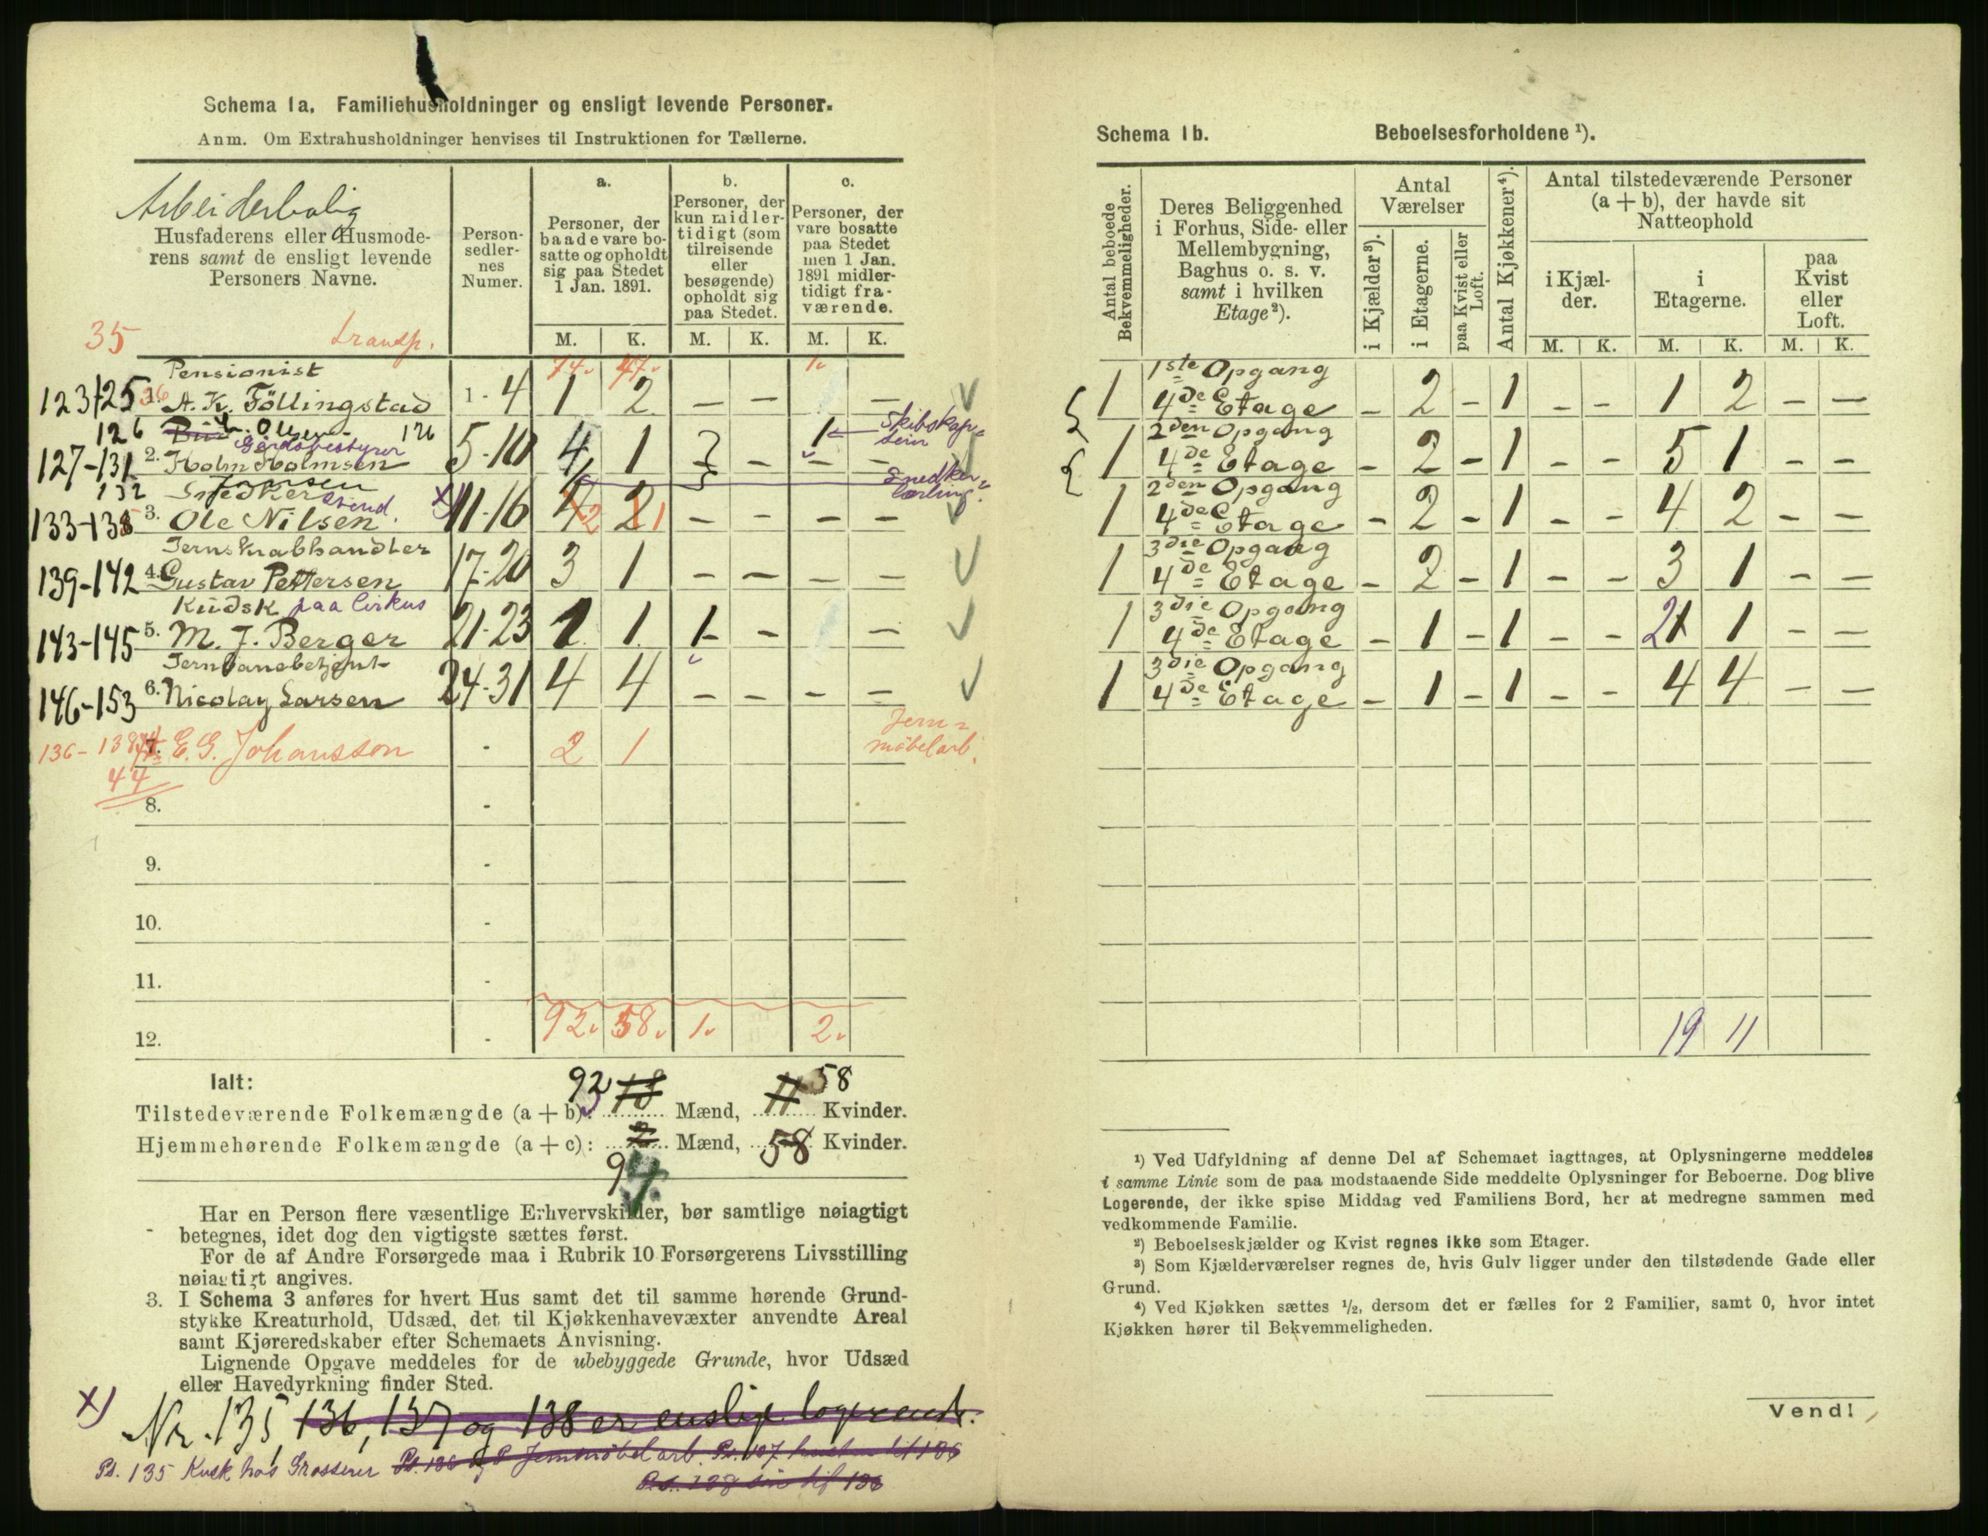 Schema 1a. Familiehusholdninger og ensligt levende Personer.
Anm. Om Extrahusholdninger henvises til Instruktionen for Tællerne.
Arbeiderbolig
Husfaderens eller Husmode-
rens samt de ensligt levende
Personers Navne.
Person-
sedler-
nes
Numer.
a.
Personer, der
baade vare bo-
satte og opholdt
sig paa Stedet
1 Jan. 1891.
b.
Personer, der
kun midler-
tidigt (som
tilreisende
eller
besøgende)
opholdt sig
paa Stedet.
c.
Personer, der
vare bosatte
paa Stedet
men 1 Jan.
1891 midler-
tidigt fra-
værende.
M. K. M. K. M. K.
35 transp. 74. 47. 1.
Pensionist
123-125 36 1. A. K. Föllingstad 1-4 1 2 — — —
126 Olsen 126 1 Skibskap-
tein
Gårdsbestyrer
127-131 2. Holm Holmsen 5-10 4 1 — — —
132 Jonsen Snedker-
lærling.
Snedkersvend.
133-135 3. Ole Nilsen x) 11-16 4 2 2 1 — — — —
Jernskrabhandler
139-142 4. Gustav Pettersen 17-20 3 1 — — — —
Kudsk paa Cirkus
143-145 5. M. J. Berger 21-23 1 1 1 — —
Jernbanebetjent
146-153 6. Nicolay Larsen 24-31 4 4 — — — —
136-138 7. E. G. Johansson - 2 1 Jern-
møbelarb.
44
8. -
9. -
10. -
11. -
92. 58. 1. 2.
12. -
Ialt:
Tilstedeværende Folkemængde (a + b): 92 18 Mænd, 11 58 Kvinder.
Hjemmehørende Folkemængde (a + c): 2 Mænd, 58 Kvinder.
94
Har en Person flere væsentlige Erhvervskilder, bør samtlige nøiagtigt
betegnes, idet dog den vigtigste sættes først.
For de af Andre Forsørgede maa i Rubrik 10 Forsørgerens Livsstilling
nøiagtigt angives.
3. I Schema 3 anføres for hvert Hus samt det til samme hørende Grund-
stykke Kreaturhold, Udsæd, det til Kjøkkenhavevæxter anvendte Areal
samt Kjøreredskaber efter Schemaets Anvisning.
Lignende Opgave meddeles for de ubebyggede Grunde, hvor Udsæd
eller Havedyrkning finder Sted.
x) Nr. 135, 136, 137 og 138 er enslige logerende.
Ps. 135 Kusk hos Grosserer Ps. 136 Jernmøbelarb. Ps. 137 hustru til 136
Ps. 138 søn til 136
Schema 1b. Beboelsesforholdene ¹).
Antal beboede
Bekvemmeligheder.
Deres Beliggenhed
i Forhus, Side- eller
Mellembygning,
Baghus o. s. v.
samt i hvilken
Etage ²).
Antal
Værelser
i Kjælder ³).
i Etagerne.
paa Kvist eller
Loft.
Antal Kjøkkener ⁴).
Antal tilstedeværende Personer
(a + b), der havde sit
Natteophold
i Kjæl-
der.
i
Etagerne.
paa
Kvist
eller
Loft.
M. K. M. K. M. K.
1ste Opgang
1 4de Etage — 2 — 1 — — 1 2 — —
2den Opgang
1 4de Etage — 2 — 1 — — 5 1 — —
2den Opgang
1 4de Etage — 2 — 1 — — 4 2 — —
3die Opgang
1 4de Etage — 2 — 1 — — 3 1 — —
3die Opgang
1 4de Etage — 1 — 1 — — 2 1 — —
3die Opgang
1 4de Etage — 1 — 1 — — 4 4 — —
19 11
¹) Ved Udfyldning af denne Del af Schemaet iagttages, at Oplysningerne meddeles
i samme Linie som de paa modstaaende Side meddelte Oplysninger for Beboerne. Dog blive
Logerende, der ikke spise Middag ved Familiens Bord, her at medregne sammen med
vedkommende Familie.
²) Beboelseskjælder og Kvist regnes ikke som Etager.
³) Som Kjælderværelser regnes de, hvis Gulv ligger under den tilstødende Gade eller
Grund.
⁴) Ved Kjøkken sættes ½, dersom det er fælles for 2 Familier, samt 0, hvor intet
Kjøkken hører til Bekvemmeligheden.
Vend!